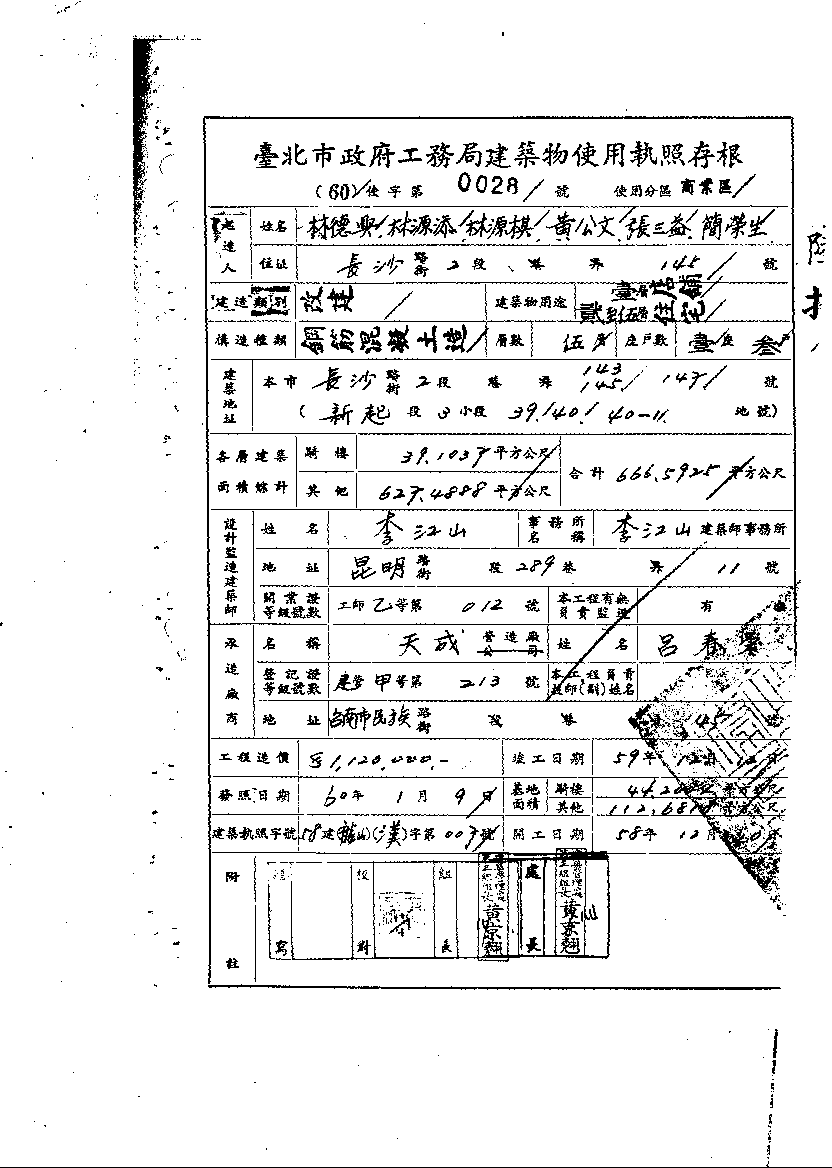 臺北市政府工務局建築物使用執照存根
(60)使字第 0028 號 使用分區 商業區
起造人 姓名 林德興 林源添 林源棋 黃公文 張三益 簡榮生
住址 長沙 路街 2 段 巷 弄 145 號
建造類別 改建 建築物用途 壹層店舖
貳至伍層住宅
構造種類 鋼筋混凝土造 層數 伍層 座戶數 壹座 叁
建築地址 本市 長沙 路街 2 段 巷 弄 143 145 147 號
(新起 段 3 小段 39.40. 40-11 地號)
各層建築面積總計 騎樓 39.1037 平方公尺 合計 666.5925 平方公尺
其他 627.4888 平方公尺
設計監造建築師 姓名 李江山 事務所名稱 李江山 建築師事務所
地址 昆明 路街 段 289 巷 弄 11 號
開業證等級號數 工師乙等第 012 號 本工程有無負責監造 有
承造廠商 名稱 天成 營造廠公司 姓名 呂春
登記證等級號數 建登甲等第 213 號 本工程負責技師(副)姓名
地址 台南市民族 路街 段 巷 45 號
工程造價 1,120,000.- 竣工日期 59年 12月 12日
發照日期 60年 1月 9日 基地面積 騎樓 平方公尺
其他 平方公尺
建築執照字號 58建(龍山)(漢)字第 007 號 開工日期 58年 12月
附註 繕寫 校對 組長 黃宗翹 處長